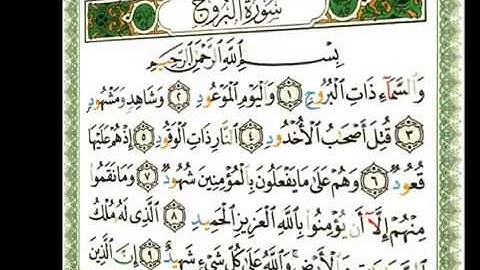 سُورَةُ الْبُرُوجِ
بِسْمِ اللَّهِ الرَّحْمَٰنِ الرَّحِيمِ
وَالسَّمَاءِ ذَاتِ الْبُرُوجِ ١ وَالْيَوْمِ الْمَوْعُودِ ٢ وَشَاهِدٍ وَمَشْهُودٍ
٣ قُتِلَ أَصْحَابُ الْأُخْدُودِ ٤ النَّارِ ذَاتِ الْوَقُودِ ٥ إِذْ هُمْ عَلَيْهَا
قُعُودٌ ٦ وَهُمْ عَلَىٰ مَا يَفْعَلُونَ بِالْمُؤْمِنِينَ شُهُودٌ ٧ وَمَا نَقَمُوا
مِنْهُمْ إِلَّا أَنْ يُؤْمِنُوا بِاللَّهِ الْعَزِيزِ الْحَمِيدِ ٨ الَّذِي لَهُ مُلْكُ
السَّمَاوَاتِ وَالْأَرْضِ ۚ وَاللَّهُ عَلَىٰ كُلِّ شَيْءٍ شَهِيدٌ ٩ إِنَّ الَّذِينَ